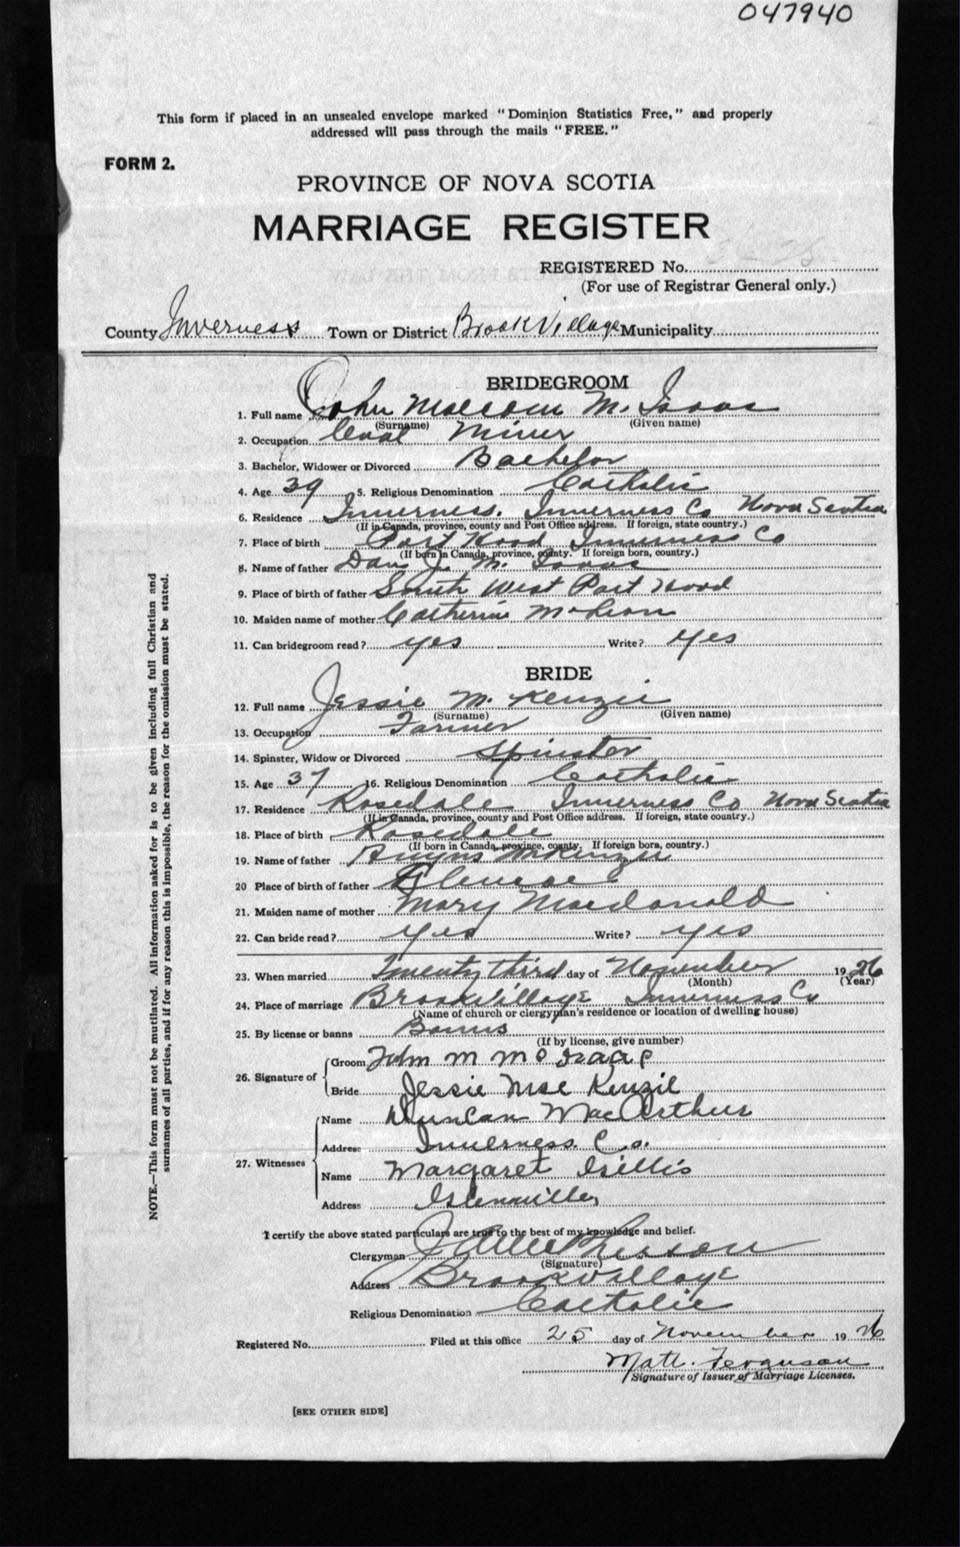 047940
This form if placed in an unsealed envelope marked "Dominion Statistics Free," and properly
addressed will pass through the mails "FREE."
FORM 2.
PROVINCE OF NOVA SCOTIA
MARRIAGE REGISTER
REGISTERED No.
(For use of Registrar General only.)
County Inverness Town or District Brook Village Municipality
BRIDEGROOM
1. Full name John Malcolm Mc Isaac
(Surname) (Given name)
2. Occupation Coal Miner
3. Bachelor, Widower or Divorced Bachelor
4. Age 39 5. Religious Denomination Catholic
6. Residence Inverness. Inverness Co Nova Scotia
(If in Canada, province, county and Post Office address. If foreign, state country.)
7. Place of birth Port Hood Inverness Co
(If born in Canada, province, county. If foreign born, country.)
8. Name of father Dan J. Mc Isaac
9. Place of birth of father South West Port Hood
10. Maiden name of mother Catherine McLean
11. Can bridegroom read? yes Write? yes
BRIDE
12. Full name Jessie Mc Kenzie
(Surname) (Given name)
13. Occupation Farmer
14. Spinster, Widow or Divorced Spinster
15. Age 37 16. Religious Denomination Catholic
17. Residence Rosedale Inverness Co Nova Scotia
(If in Canada, province, county and Post Office address. If foreign, state country.)
18. Place of birth Rosedale
(If born in Canada, province, county. If foreign born, country.)
19. Name of father Angus McKenzie
20 Place of birth of father Glencoe
21. Maiden name of mother Mary Macdonald
22. Can bride read? yes Write? yes
23. When married Twenty third day of November 1926
(Month) (Year)
24. Place of marriage Brook Village Inverness Co
(Name of church or clergyman's residence or location of dwelling house)
25. By license or banns Banns
(If by license, give number)
26. Signature of Groom John M Mc Isaac
Bride Jessie Mac Kenzie
27. Witnesses Name Duncan MacArthur
Address Inverness Co.
Name Margaret Gillis
Address Glenville
I certify the above stated particulars are true to the best of my knowledge and belief.
Clergyman
(Signature)
Address Brook Village
Religious Denomination Catholic
Registered No. Filed at this office 25 day of November 1926
Matt. Ferguson
Signature of Issuer of Marriage Licenses.
[SEE OTHER SIDE]
NOTE.—This form must not be mutilated. All information asked for is to be given including full Christian and
surnames of all parties, and if for any reason this is impossible, the reason for the omission must be stated.